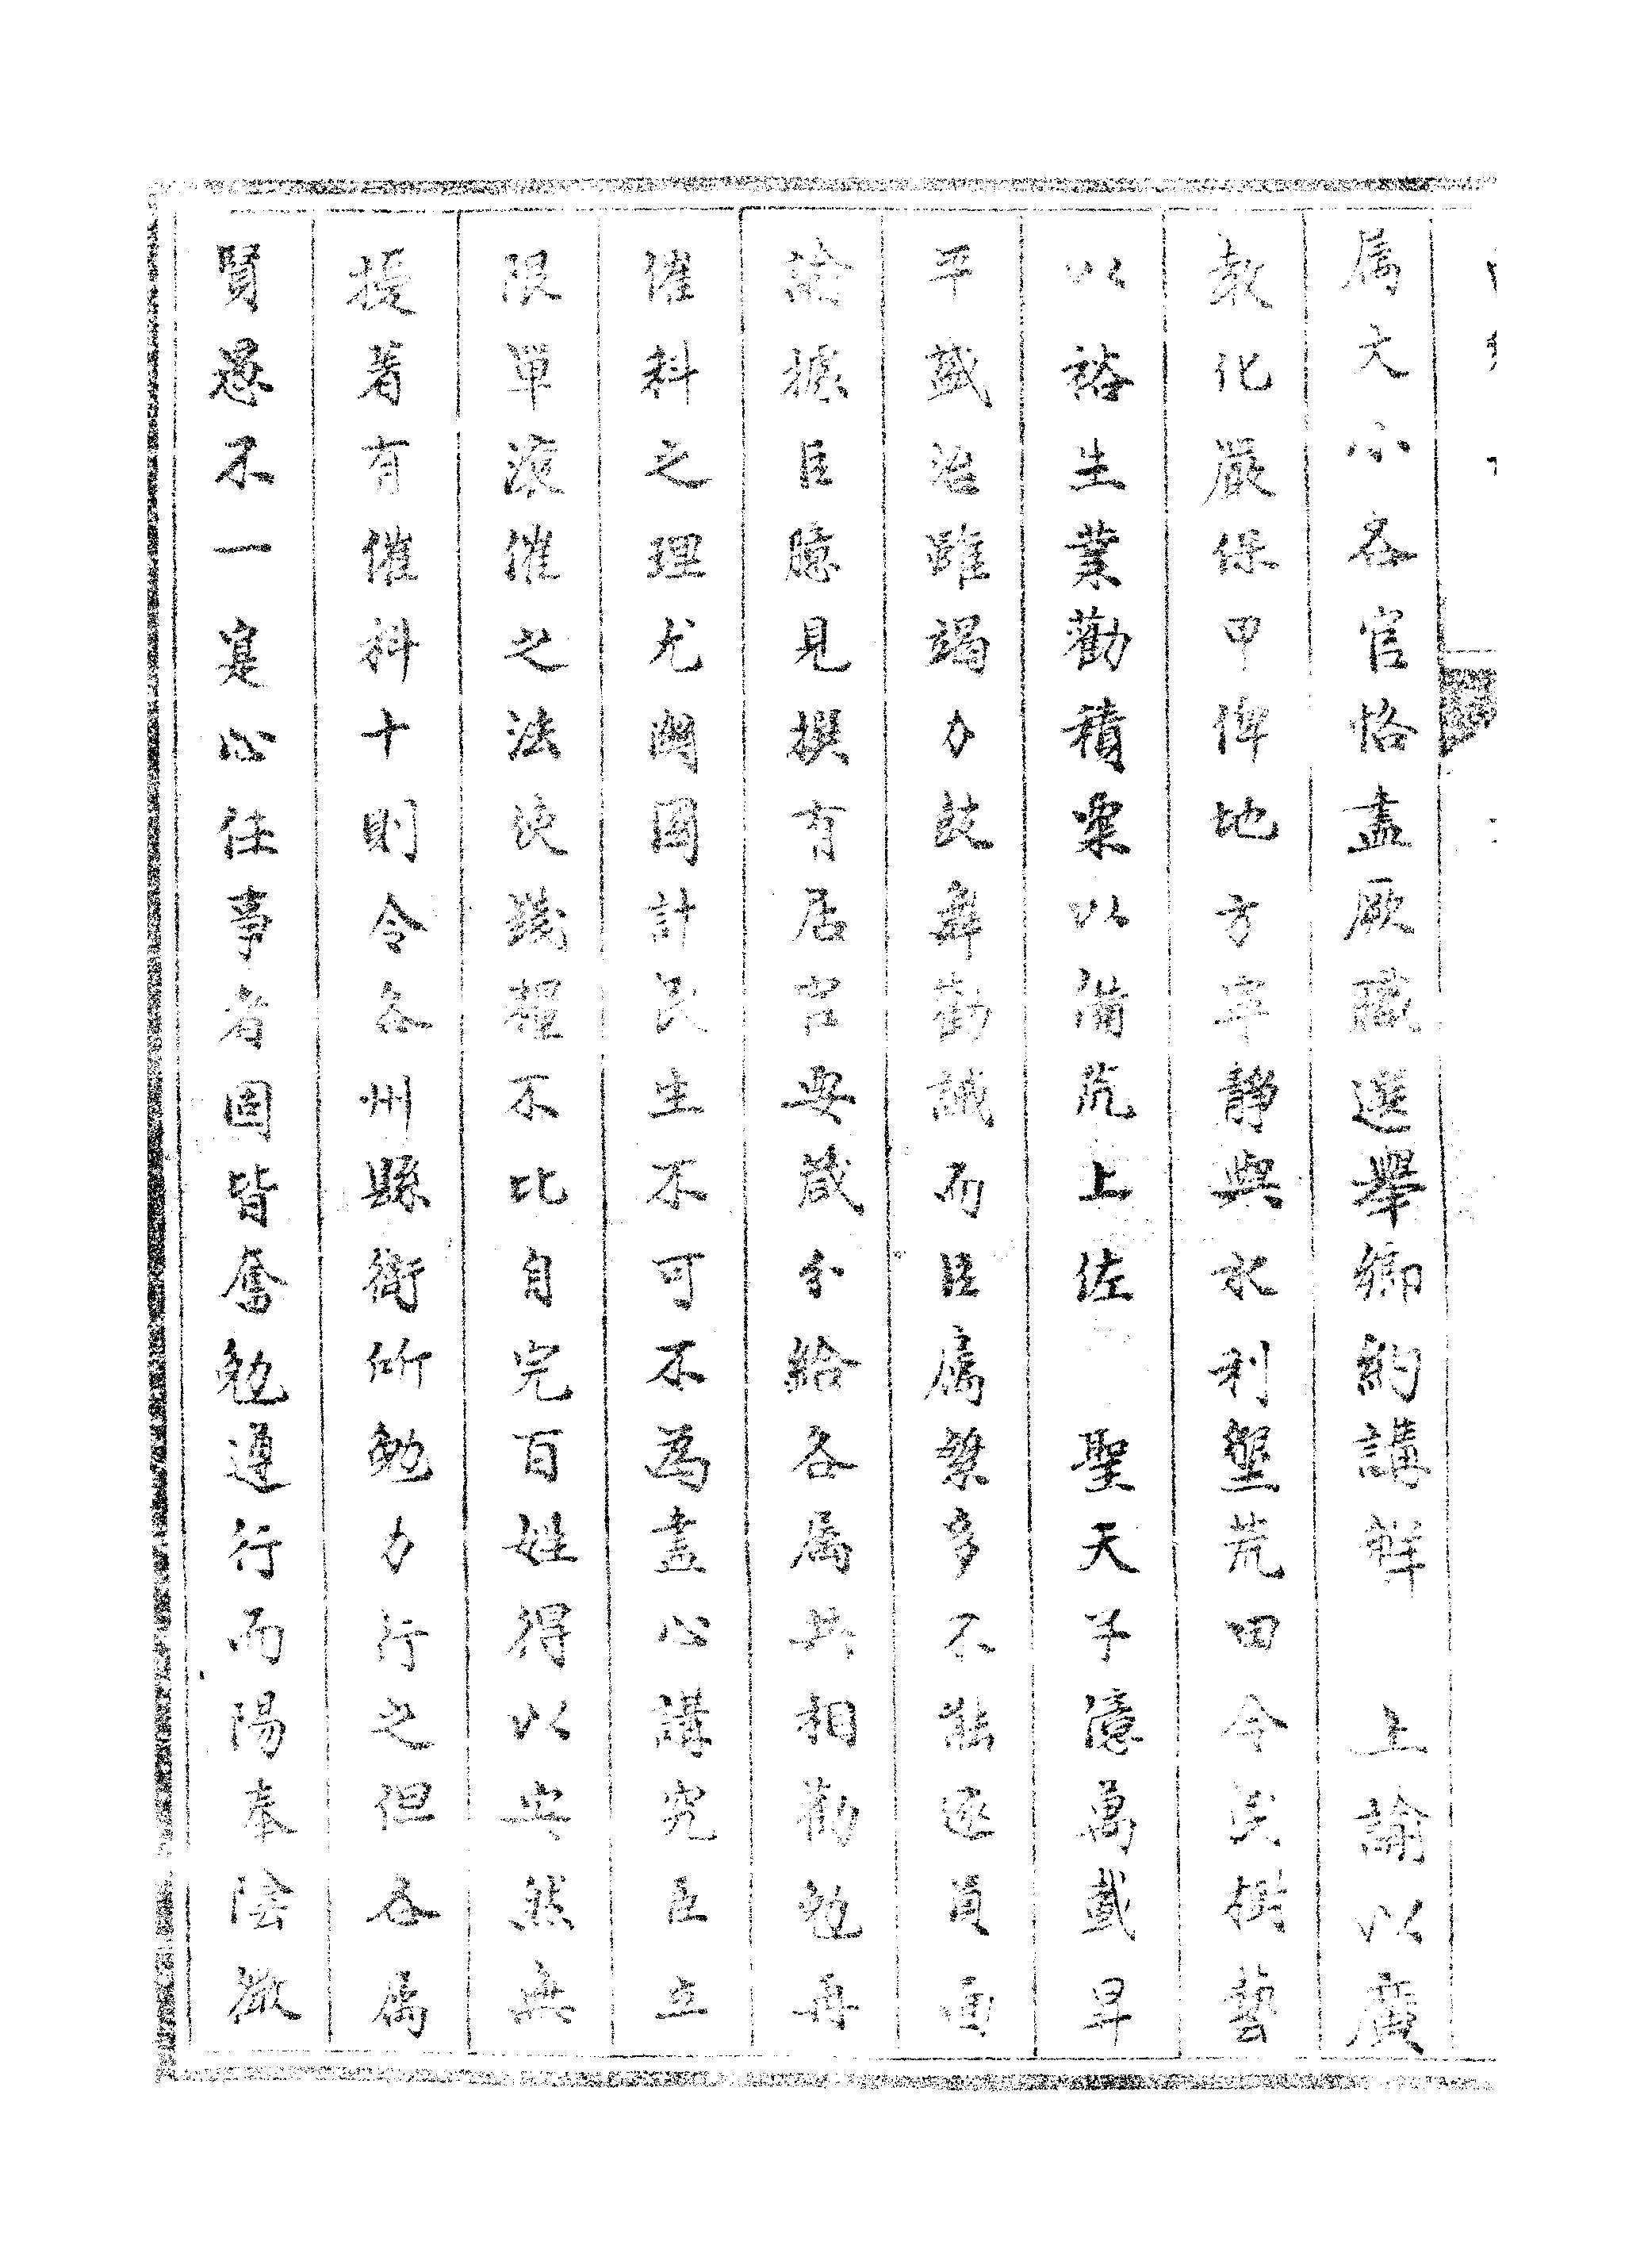 属大小各官恪盡厥職選舉鄉約講解　上諭以廣
教化嚴保甲俾地方寧静興水利墾荒田令民樹藝
以裕生業勸積粟以備荒上佐　聖天子億萬載昇
平盛治雖竭力鼓舞勸誡而臣属繁多不能逐員面
諭據臣臆見撰有居官要箴分給各属共相勸勉再
催科之理尤關國計民生不可不為盡心講究臣立
限單滾催之法使錢糧不比自完百姓得以安然無
擾著有催科十則令各州縣衛所勉力行之但各属
賢愚不一寔心任事者固皆奮勉遵行而陽奉陰違